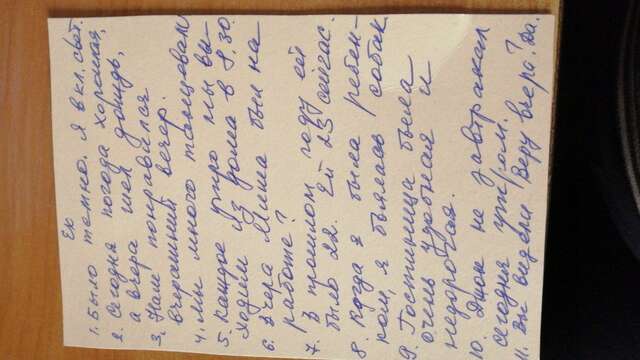 Ею
1. Было темно. Я вкл. свет.
2. Сегодня погода хорошая,
а вчера шёл дождь,
3. Нам понравился
вчерашний вечер.
4. Мы много танцевали
5. Каждое утро мы вы-
ходим из дома в 8.30
6. Вчера Миша был на
работе?
7. В прошлом году ей
было 22. Ей 23 сейчас.
8. Когда я была ребён-
ком, я боялась собак
9. Гостиница была
очень удобная и
недорогая.
10 Джек не завтракал
сегодня утром.
11. Вы видели Веру вчера? Да.